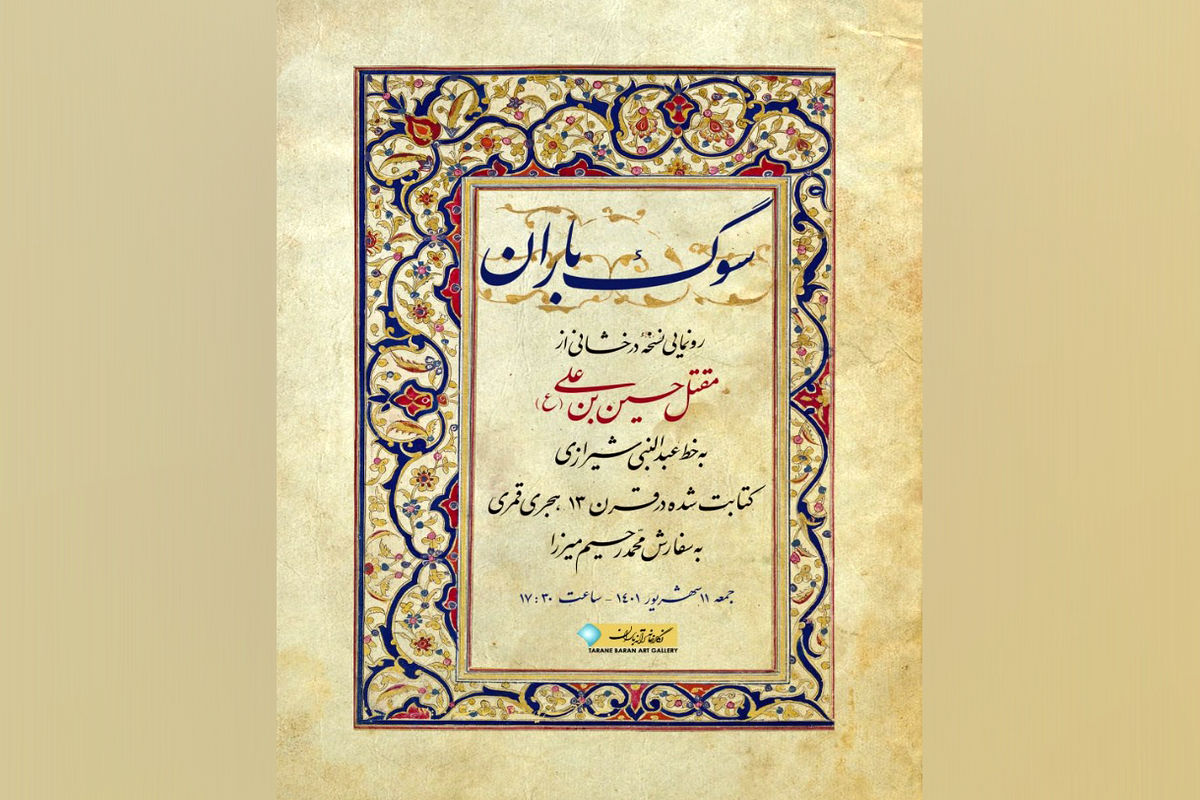 سوگ باران
رونمایی نسخهٔ درخشانی از
مقتل حسین بن علی (ع)
به خط عبدالنبی شیرازی
کتابت شده در قرن ۱۳ هجری قمری
به سفارش محمّدرحیم میرزا
جمعه ۱۱ شهریور ۱۴۰۱ - ساعت ۱۷:۳۰
نگارخانه ترانه باران
TARANE BARAN ART GALLERY